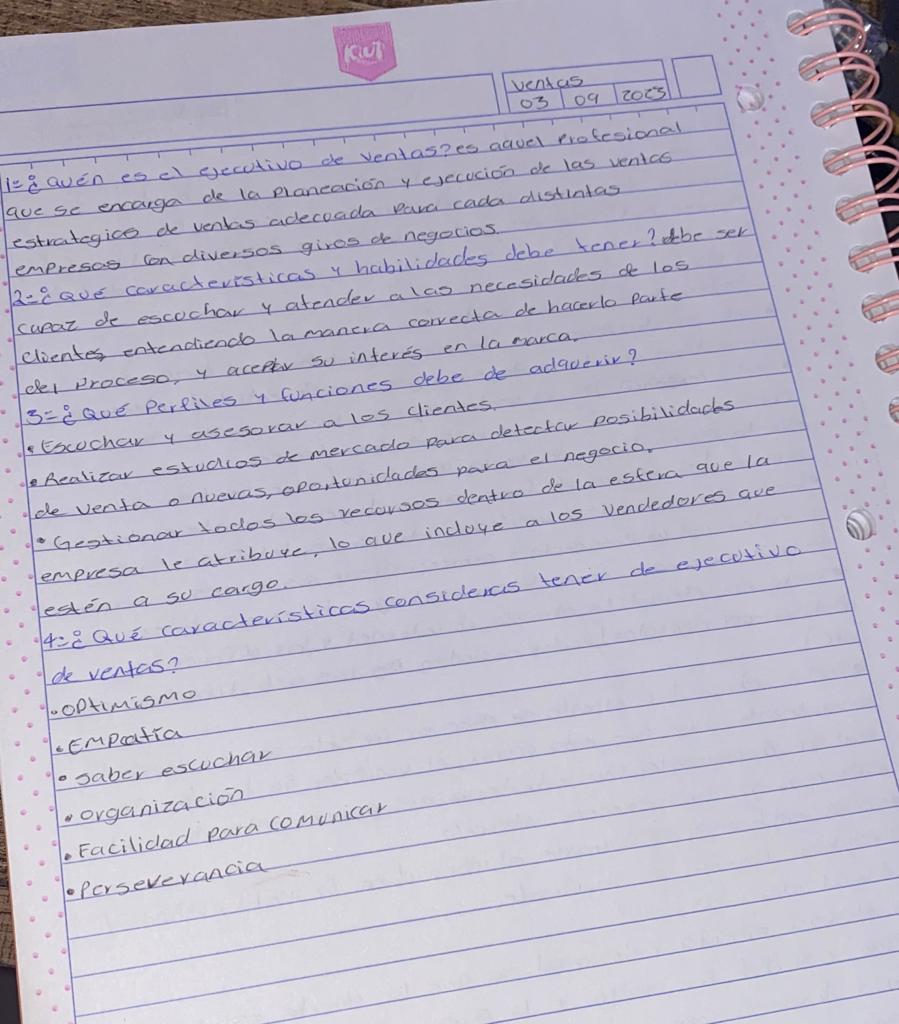 KIUT
ventas
03 09 2023
1=¿Quén es el ejecutivo de ventas? es aquel profesional
que se encarga de la planeación y ejecución de las ventas
estrategico de ventas adecuada para cada distintas
empresas con diversos giros de negocios.
2=¿Qué características y habilidades debe tener? debe ser
capaz de escuchar y atender a las necesidades de los
clientes entendiendo la manera correcta de hacerlo parte
del proceso, y aceptar su interés en la marca.
3=¿Qué perfiles y funciones debe de adquerir?
• Escuchar y asesorar a los clientes.
• Realizar estudios de mercado para detectar posibilidades
de venta o nuevas, oportunidades para el negocio.
• Gestionar todos los recursos dentro de la esfera que la
empresa le atribuye, lo que incluye a los vendedores que
estén a su cargo.
4=¿Qué características consideras tener de ejecutivo
de ventas?
• Optimismo
• Empatía
• saber escuchar
• organización
• Facilidad para comunicar
• Perseverancia